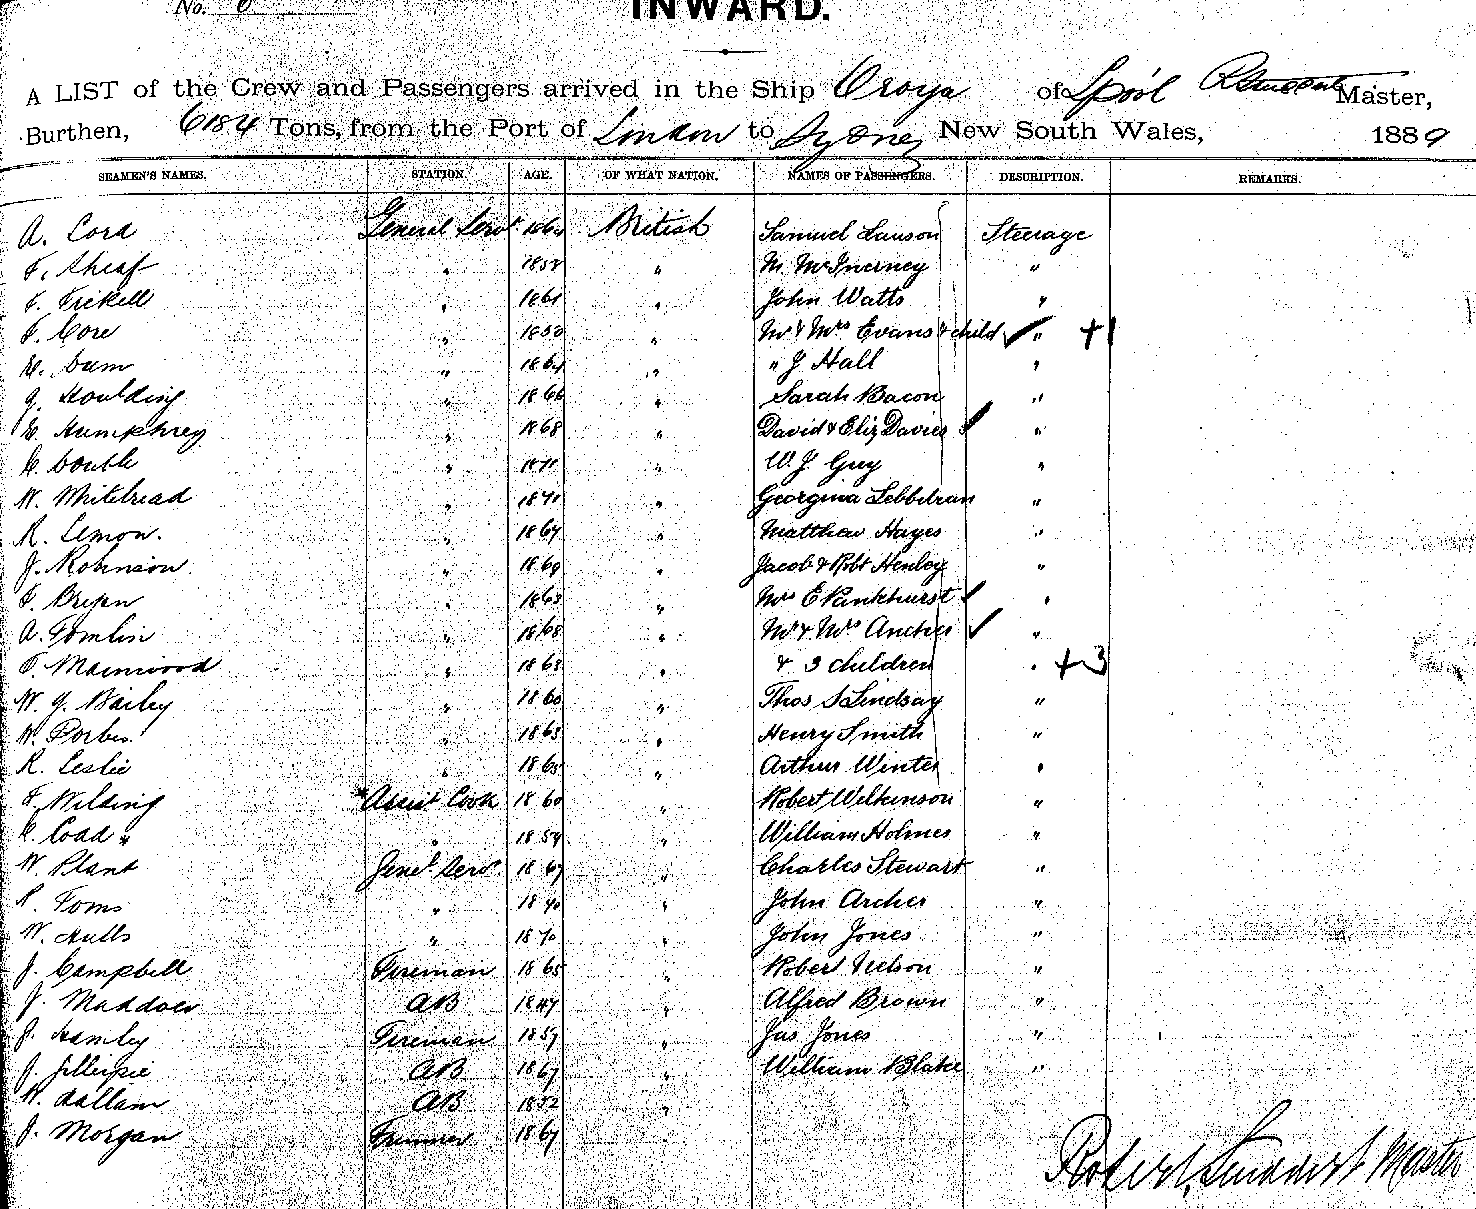 No. 6
INWARD.
A LIST of the Crew and Passengers arrived in the Ship Oroya of Lpool Master,
Burthen, 6184 Tons, from the Port of London to Sydney New South Wales, 1889
SEAMEN'S NAMES. STATION. AGE. OF WHAT NATION. NAMES OF PASSENGERS. DESCRIPTION. REMARKS.
A. Cord General Servt 1864 British Samuel Lauson Steerage
F. Sheaf " 1858 " M McInerney "
F. Frikell " 1861 " John Watts "
F. Core " 1850 " Mr & Mrs Evans & child " +1
" 1864 " " J Hall "
G. Houlding " 1866 " Sarah Bacon "
E. Humphrey " 1868 " David & Eliz Davies "
" 1871 " W. J. Guy "
W. Whitebread " 1871 " Georgina "
R. Lemon. " 1867 " Matthew Hayes "
J. Robinson " 1869 " Jacob & Robt Henley "
" 1863 " Mrs E Pankhurst "
A. Tomlin " 1868 " Mr & Mrs Ancher "
F. Mainwood " 1868 " & 3 children " +3
W. G. Bailey " 1860 " Thos S Lindsay "
W. Forbes. " 1863 " Henry Smith "
R. Leslie " 1865 " Arthur Winter "
F. Wilding Assist Cook 1860 " Robert Wilkinson "
C. Coad " " 1859 " William Holmes "
W. Plant Genl. Serv. 1867 " Charles Stewart "
R. Toms " 1870 " John Archer "
W. Hulls " 1870 " John Jones "
J. Campbell Fireman 1865 " Robert Nelson "
J. Maddocs AB 1847 " Alfred Brown "
J. Hanley Fireman 1859 " Jas Jones "
J. Gillespie AB 1867 " William Blake "
W. Hallam AB 1852 "
J. Morgan 1867
Robert Master